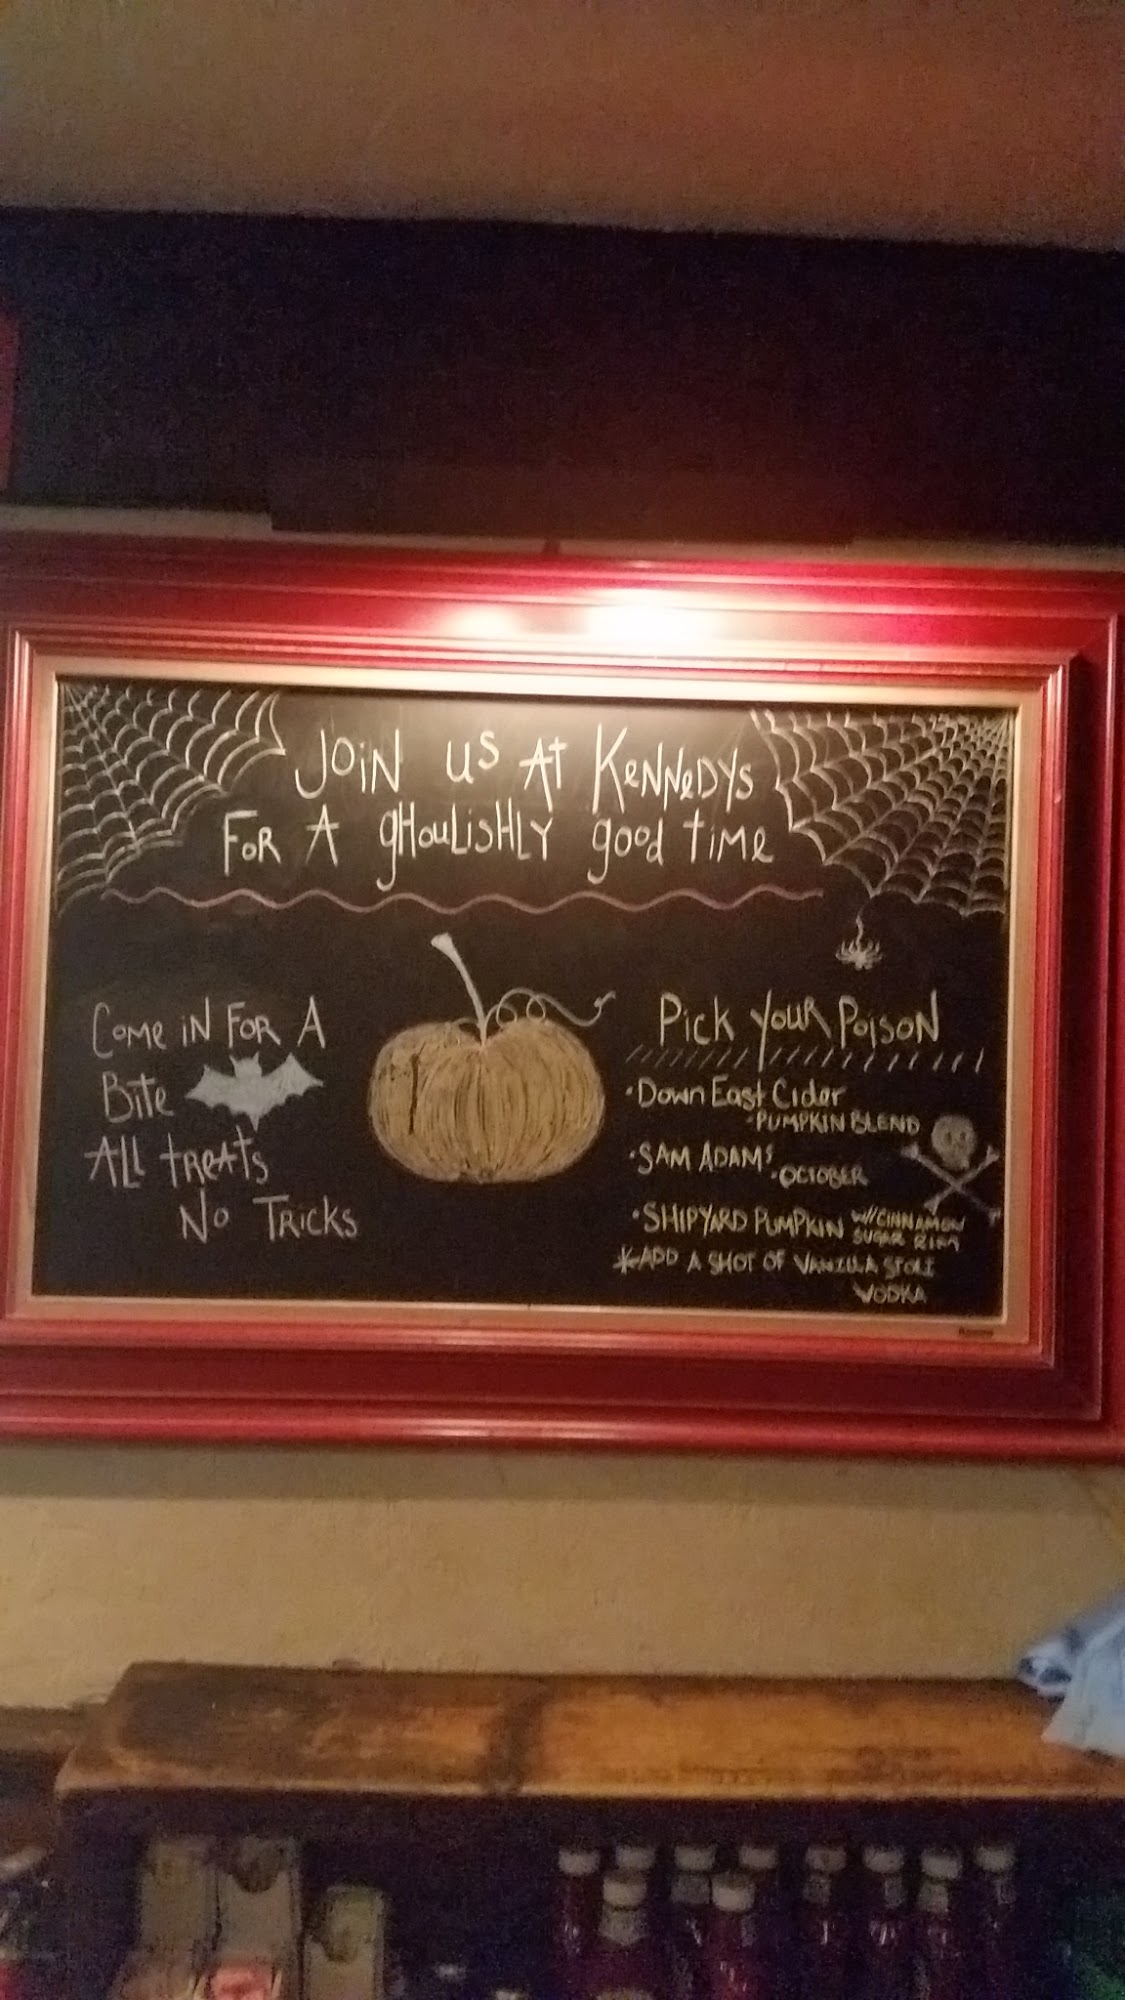 Join us At Kennedys
For A gHoulisHly good time
Come in For A
Bite
All treats
No Tricks
Pick your Poison
·Down East Cider
·PUMPKIN BLEND
·SAM ADAMS
·OCTOBER
·SHIPYARD PUMPKIN W/CINNAMON
SUGAR RIM
*ADD A SHOT OF VANILLA STOLI
VODKA